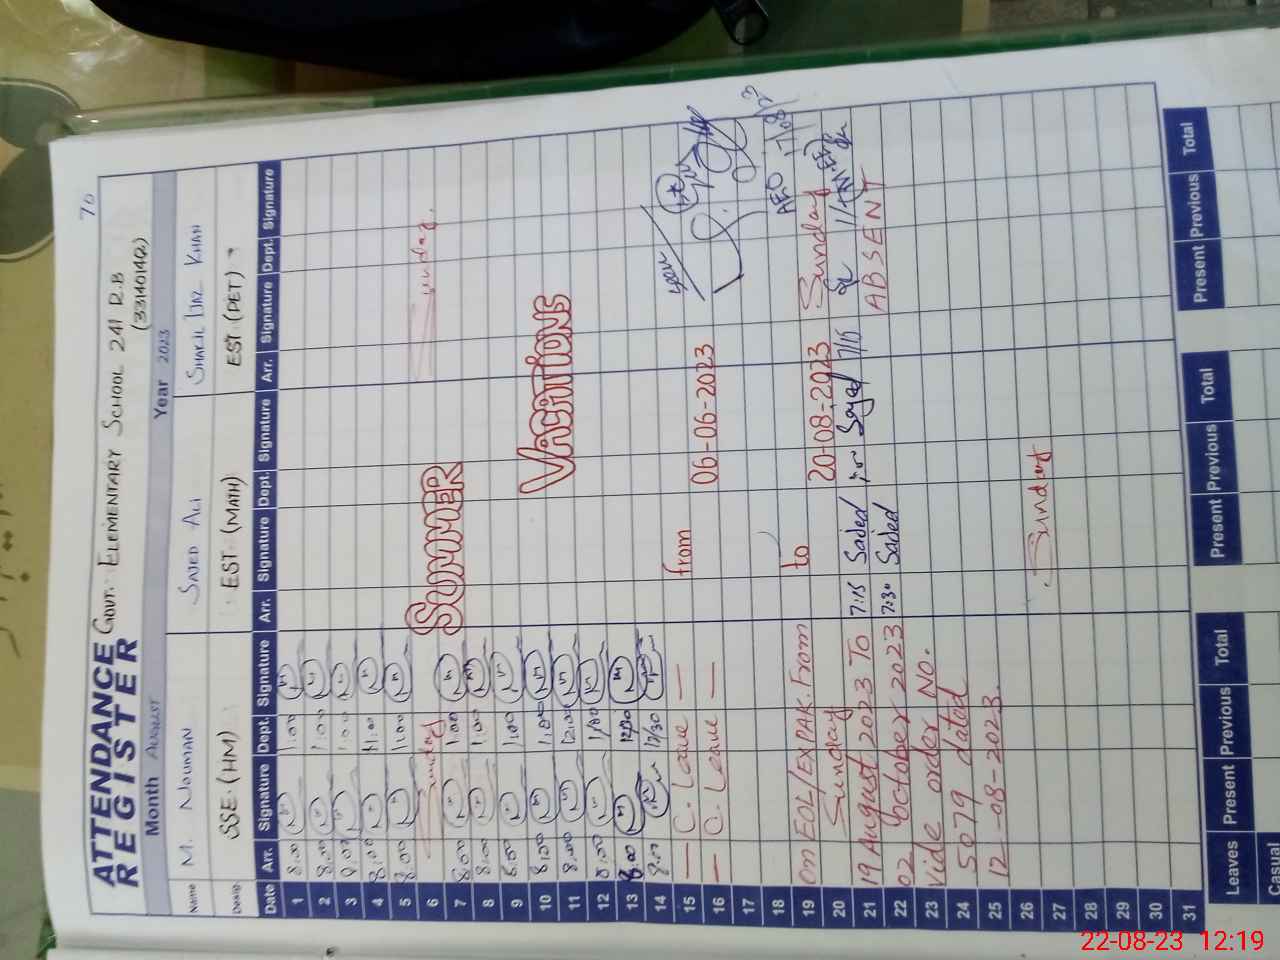 70
ATTENDANCE REGISTER
GOVT. ELEMENTARY SCHOOL 241 R.B
(33140142)
Month AUGUST Year 2023
Name M. NOUMAN SAJED ALI SHAKIL IJAZ KHAN
Desig. SSE.(HM) EST (MATH) EST (PET)
Date Arr. Signature Dept. Signature Arr. Signature Dept. Signature Arr. Signature Dept. Signature
1 8:00 1:00
2 8:00 1:00
3 8:00 1:00
4 8:00 1:00
5 8:00 1:00
6 Sunday SUMMER Sunday.
7 8:00 1:00
8 8:00 1:00
9 8:00 1:00
10 8:00 1:00 VACATIONS
11 8:00 12:00
12 8:00 1:00
13 8:00 12/30
14 8:00 12/30
15 — C. Leave — from 06-06-2023
16 — C. Leave —
17
18 AEO 17/08/23
19 on EOL/EX PAK. From to 20-08-2023 Sunday
20 Sunday
21 19 August 2023 To 7:15 Sajed Sajed 7/15
22 02 october 2023 7:30 Sajed ABSENT
23 Vide order NO.
24 5079 dated
25 12-08-2023.
26
27 Sunday
28
29
30
31
Leaves Present Previous Total Present Previous Total Present Previous Total
Casual
22-08-23 12:19